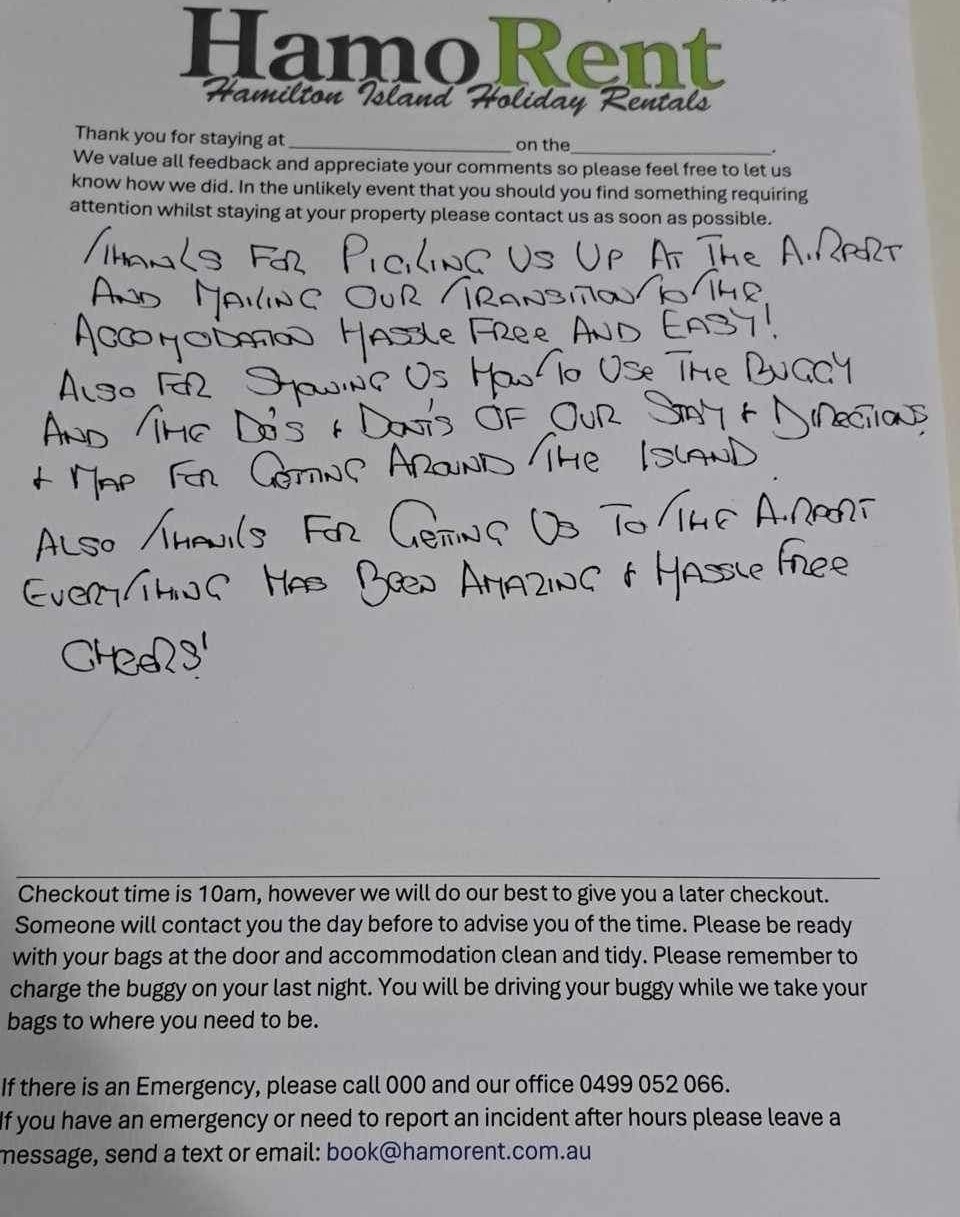 HamoRent
Hamilton Island Holiday Rentals
Thank you for staying at ______________________ on the____________________.
We value all feedback and appreciate your comments so please feel free to let us
know how we did. In the unlikely event that you should you find something requiring
attention whilst staying at your property please contact us as soon as possible.
THANKS FOR PICKING US UP AT THE AIRPORT
AND MAKING OUR TRANSITION TO THE
ACCOMODATION HASSLE FREE AND EASY!
ALSO FOR SHOWING US HOW TO USE THE BUGGY
AND THE DO'S + DON'TS OF OUR STAY + DIRECTIONS
+ MAP FOR GETTING AROUND THE ISLAND.
ALSO THANKS FOR GETTING US TO THE AIRPORT
EVERYTHING HAS BEEN AMAZING & HASSLE FREE
CHEERS!
Checkout time is 10am, however we will do our best to give you a later checkout.
Someone will contact you the day before to advise you of the time. Please be ready
with your bags at the door and accommodation clean and tidy. Please remember to
charge the buggy on your last night. You will be driving your buggy while we take your
bags to where you need to be.
If there is an Emergency, please call 000 and our office 0499 052 066.
If you have an emergency or need to report an incident after hours please leave a
message, send a text or email: book@hamorent.com.au